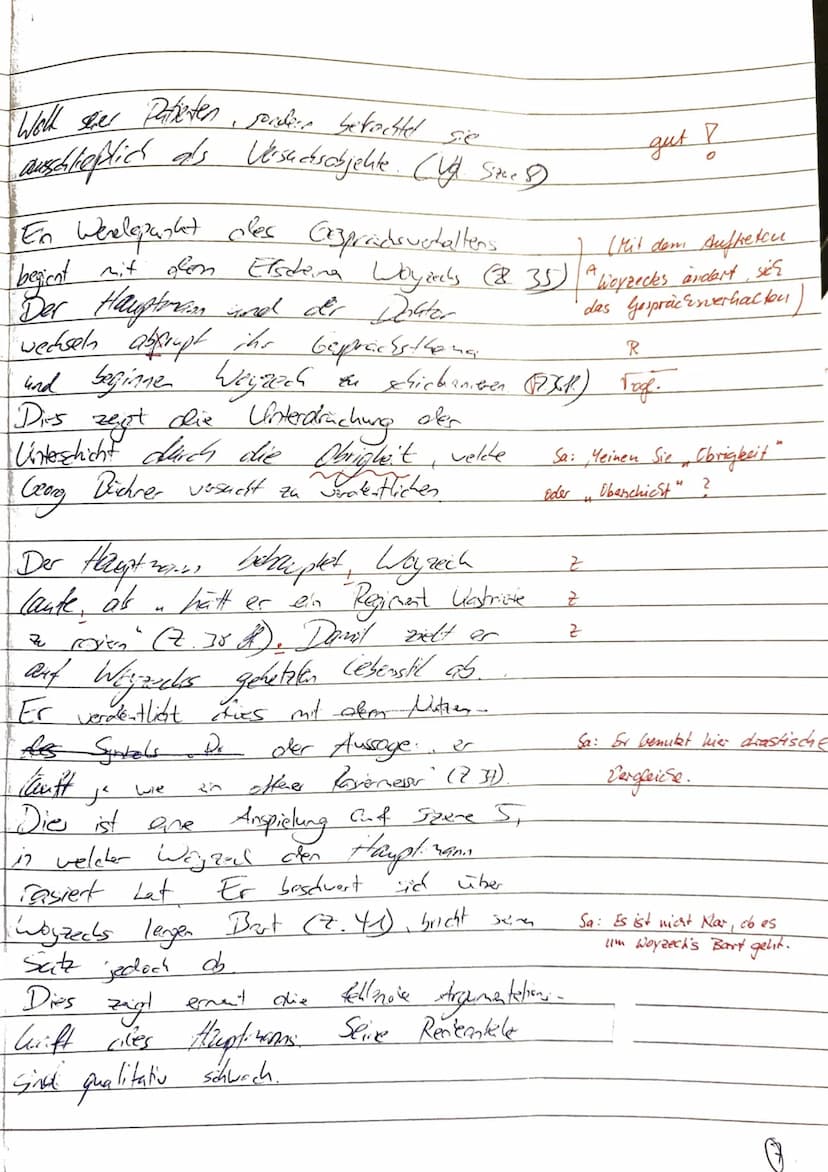 Wohl seier Patienten, sondern betrachtet sie
ausschließlich als Versuchsobjekte. (Vgl. Szene 8)
gut!
Ein Wendepunkt des Gesprächsverhaltens
beginnt mit dem Erscheinen Woyzecks (Z. 35)
(Mit dem Auftreten
A Woyzecks ändert sich
das Gesprächsverhalten)
Der Hauptmann und der Doktor
wechseln abprupt ihr Gesprächsthema R
und beginnen Woyzeck zu schickanieren
Dies zeigt die Unterdrückung der
Unterschicht durch die Obrigkeit, welche
Georg Büchner versucht zu verdeutlichen.
Sa: Meinen Sie „Obrigkeit"
oder „Oberschicht"?
Der Hauptmann behauptet, Woyzeck Z
laufe, als „hätt er ein Regiment Z
zu rasiern" (Z. 38 ). Damit zielt er Z
auf Woyzecks gehetzten Lebenstil ab.
Er verdeutlicht dies mit dem Nutzen
des Symbols der Aussage: er
läuft ja wie ein offenes Rasiermesser" (Z 37).
Sa: Er benutzt hier drastische
Vergleiche.
Dies ist eine Anspielung auf Szene 5,
in welcher Woyzeck den Hauptmann
rasiert hat. Er beschwert sich über
Woyzecks langen Bart (Z. 41), bricht seinen
Satz jedoch ab.
Sa: Es ist nicht klar, ob es
um Woyzeck's Bart geht.
Dies zeigt erneut die fehlende Argumentations-
kraft des Hauptmanns. Seine Redeanteile
sind qualitativ schwach.
7